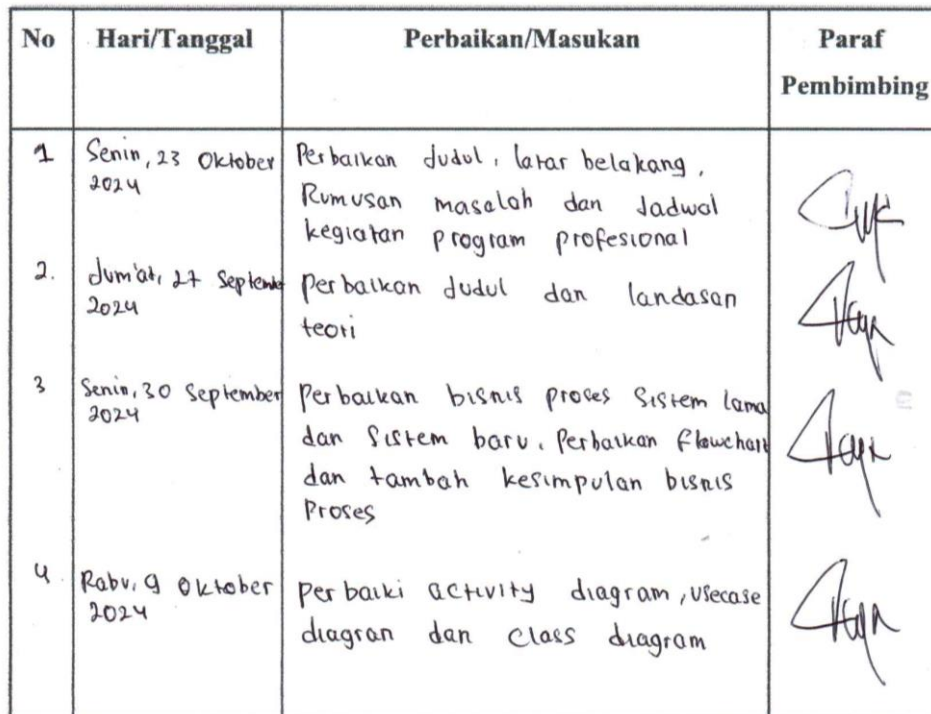 No Hari/Tanggal Perbaikan/Masukan Paraf
Pembimbing
1 Senin, 23 Oktober Perbaikan Judul, latar belakang,
2024 Rumusan masalah dan Jadwal
kegiatan program profesional
2. Jum'at, 27 Septembe Perbaikan Judul dan landasan
2024 teori
3 Senin, 30 September Perbaikan bisnis proses Sistem lama
2024 dan Sistem baru. Perbaikan flowchart
dan tambah kesimpulan bisnis
Proses
4. Rabu, 9 Oktober perbaiki activity diagram, usecase
2024 diagran dan class diagram